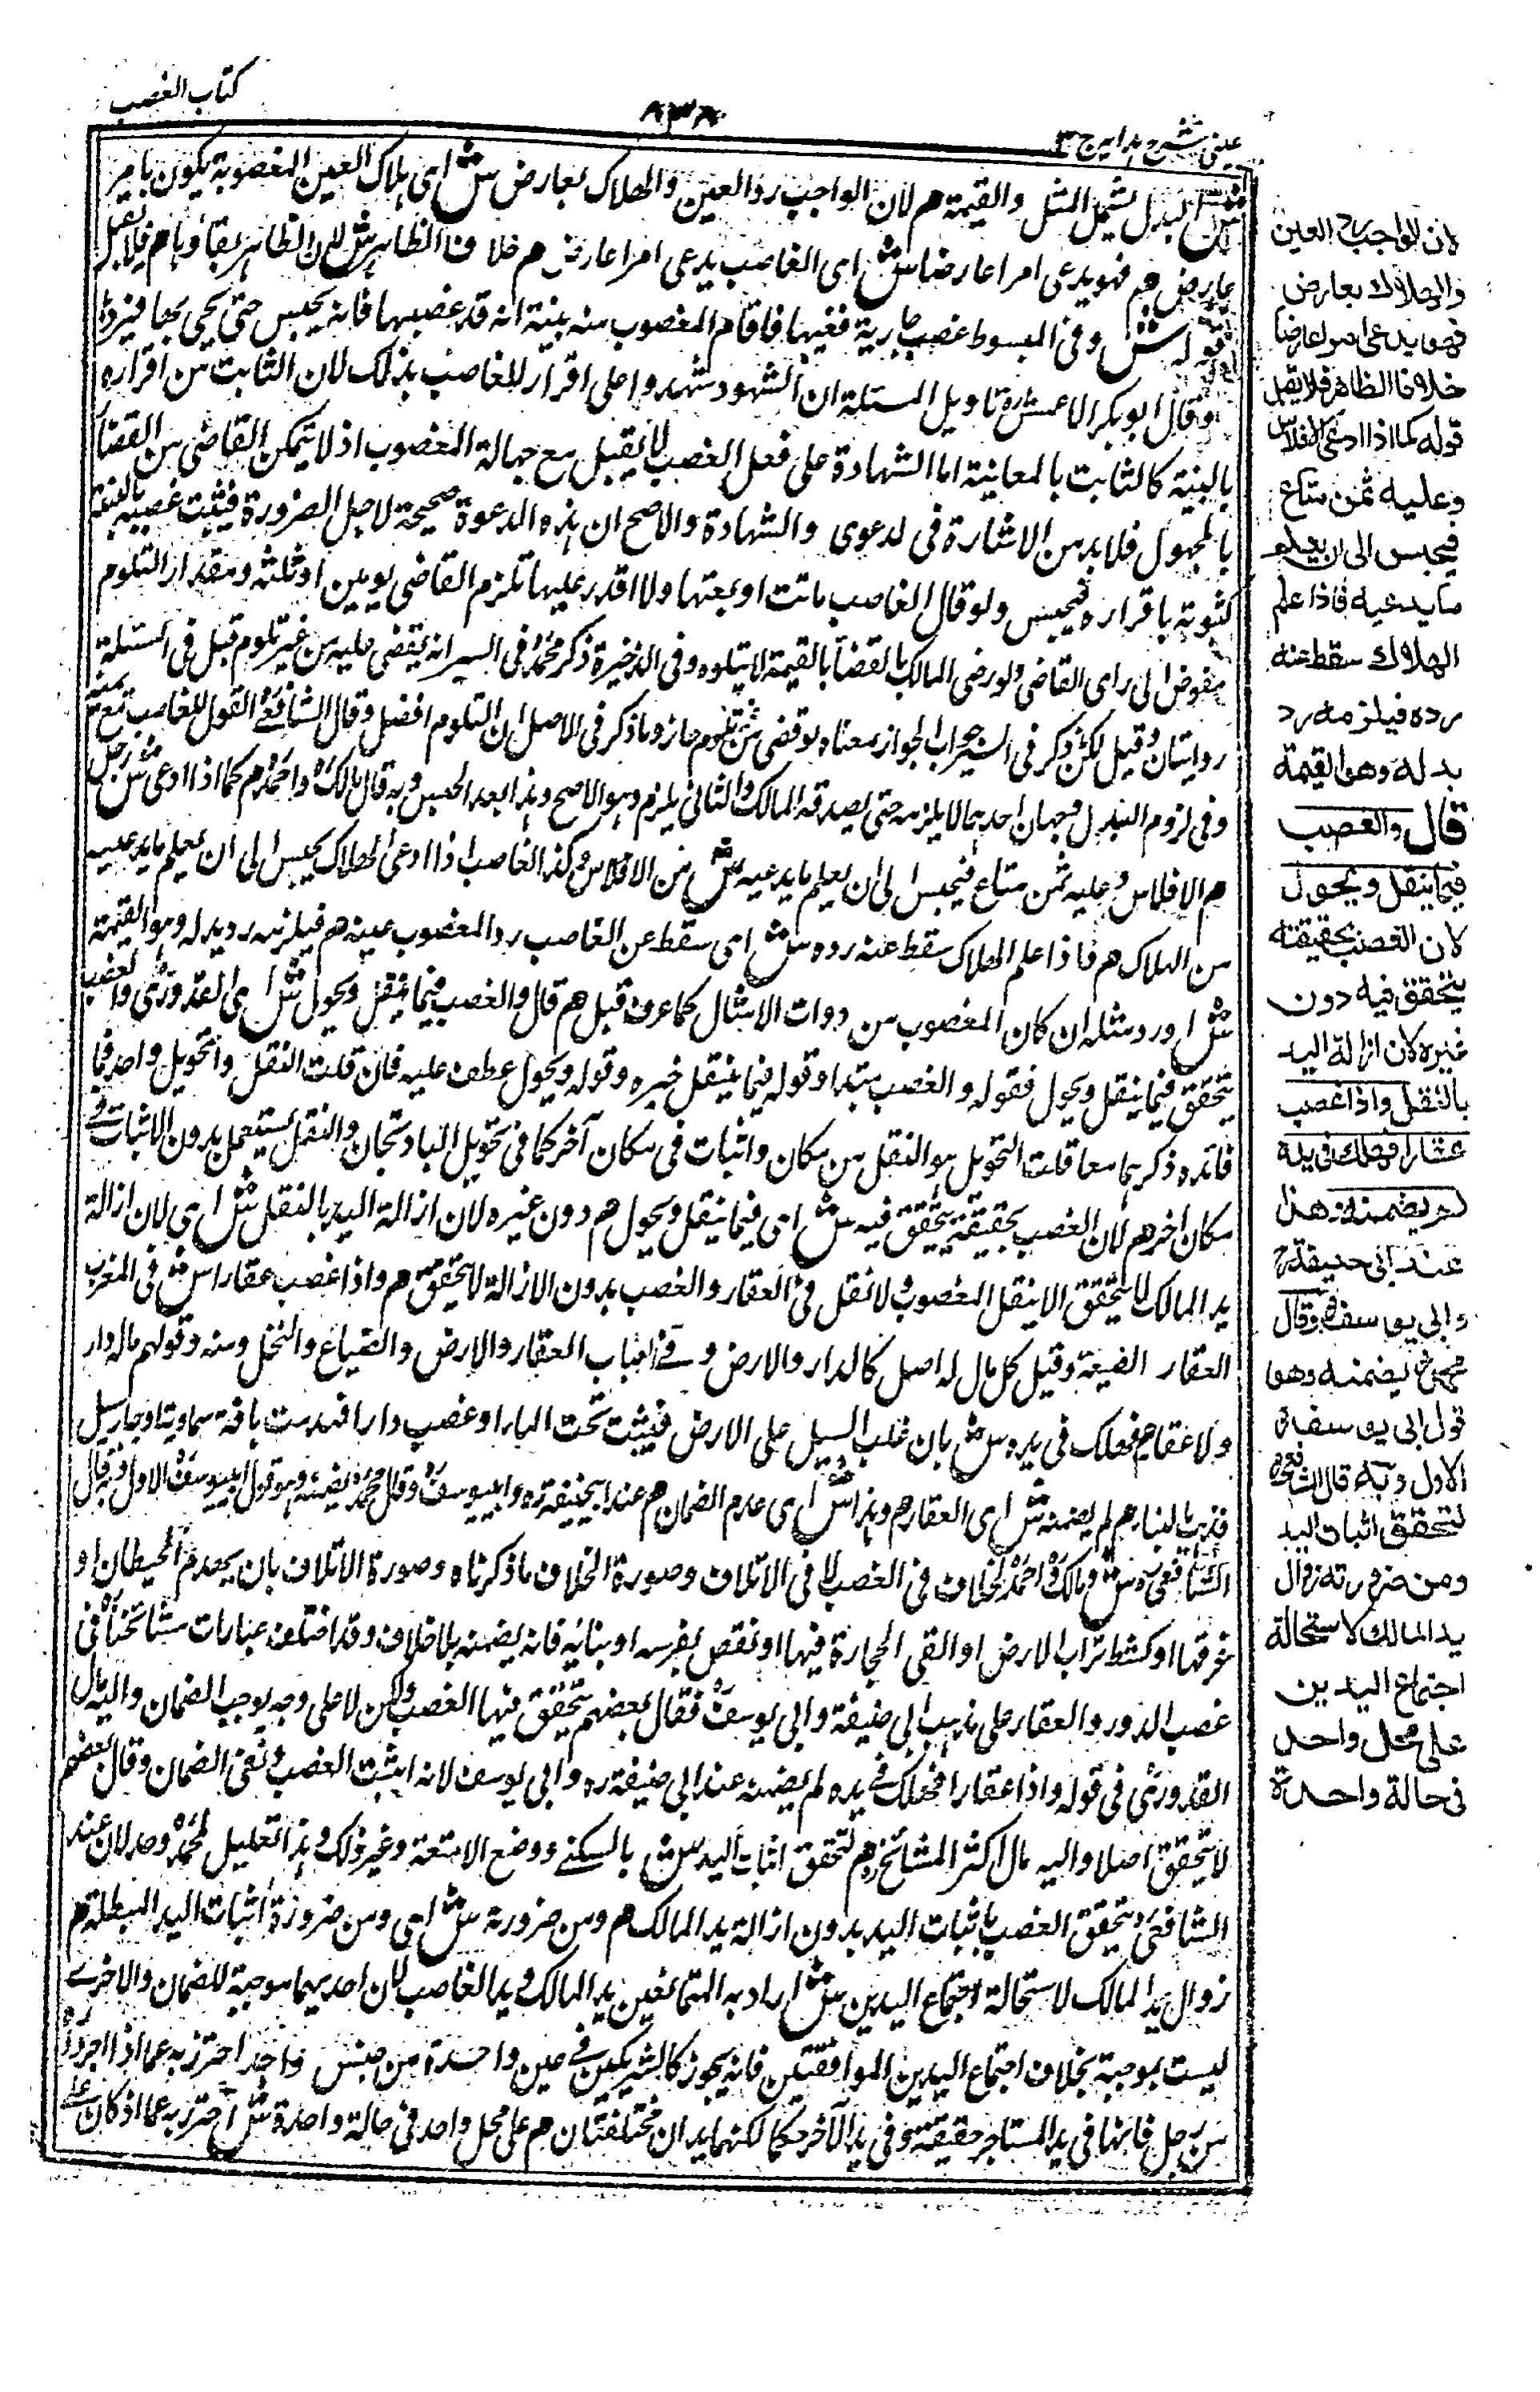 كتاب الغصب
٨٣٨
عينى شرح هدايه ج ٣
لان البدل يشمل المثل والقيمة هم لان الواجب رد العين والهلاك بعارض ش اى هلاك العين المغصوبة يكون بامر
عارض هم فهو يدعى امرا عارضا ش اى الغاصب يدعى امرا عارض هم خلاف الظاهر ش لان الظاهر بقاؤها هم فلا يقبل
قوله ش وفى المبسوط غصب جارية فغيبها فاقام المغصوب منه بينة انه قد غصبها فانه يحبس حتى يجئ بها فيردها
وقال ابوبكر الاعمش ره تاويل المسئلة ان الشهود شهدوا على اقرار للغاصب بذلك لان الثابت من اقراره
بالبينة كالثابت بالمعاينة اما الشهادة على فعل الغصب لا يقبل مع جهالة المغصوب اذ لا يتمكن القاضى من القضاء
بالمجهول فلا بد من الاشارة فى لدعوى والشهادة والاصح ان هذه الدعوة صحيحة لاجل الضرورة فيثبت غصبه بالبينة
كثبوته باقراره فيحبس ولو قال الغاصب ماتت او بعتها ولا اقدر عليها تلزم القاضى يومين او ثلثه ومقدار التلوم
مفوض الى راى القاضى ولو رضى المالك بالقضا بالقيمة لا يتلوه وفى الذخيرة ذكر محمد فى السير انه يقضى عليه من غير تلوم قبل فى المسئلة
روايتان وقيل لكن ذكر فى السير جواب الجواز معناه لو قضى من تلوم جاز وما ذكر فى الاصل ان التلوم افضل وقال الشافعى القول للغاصب مع يمينه
وفى لزوم البدل وجهان احدهما لا يلزمه حتى يصدقه المالك والثانى يلزم وهو الاصح وهذا بعد الحبس وبه قال مالك واحمد هم كما اذا ادعى ش رجل
هم الافلاس وعليه ثمن متاع فيحبس الى ان يعلم ما يدعيه ش من الافلاس وكذا الغاصب اذا ادعى الهلاك يحبس الى ان يعلم ما يدعيه
من الهلاك هم فاذا علم الهلاك سقط عنه رده ش اى سقط عن الغاصب رد المغصوب عينه هم فيلزمه رد بدله وهو القيمة
ش او رد مثله ان كان المغصوب من ذوات الامثال كما عرف قبل هم قال والغصب فيما ينقل ويحول ش اى القدورى والغصب
يتحقق فيما ينقل ويحول فقوله والغصب مبتدا وقوله فيما ينقل خبره وقوله ويحول عطف عليه فان قلت النقل والتحويل واحد فما
فائده ذكرهما معا قلت التحويل هو النقل من مكان واثبات فى مكان آخر كما فى تحويل الباذنجان والنقل يستعمل بدون الاثبات فى
مكان اخر هم لان الغصب بحقيقة يتحقق فيه ش اى فيما ينقل ويحول هم دون غيره لان ازالة اليد بالنقل ش اى لان ازالة
يد المالك لا يتحقق الا بنقل المغصوب ولا نقل فى العقار والغصب بدون الازالة لا يتحقق هم واذا غصب عقارا ش فى المغرب
العقار الضيعة وقيل كل مال له اصل كالدار والارض وفى العباب العقار والارض والضياع والنخل ومنه وقولهم ماله دار
ولا عقار هم فهلك فى يده ش بان غلب السيل على الارض فيثبت تحت الماء او غصب دارا فهدمت بافة سماوية او جاء سيل
فذهب بالبناء هم لم يضمنه ش اى العقار هم وهذا ش اى عدم الضمان هم عند ابيحنيفة ره وابيوسف وقال محمد يضمنه وهو قول ابييوسف الاول وبه قال
الشافعى ره ش ومالك واحمد الخلاف فى الغصب لا فى الاتلاف وصورة الخلاف ما ذكرناه وصورة الاتلاف بان يهدم الحيطان او
غرقها او كشط تراب الارض او القى الحجارة فيها او نقص بغرسه او بنائه فانه يضمنه بلا خلاف وقد اختلف عبارات مشائخنا فى
غصب الدور والعقار على مذهب ابى حنيفة وابى يوسف فقال بعضهم يتحقق فيها الغصب ولكن لا على وجه يوجب الضمان واليه مال
القدورى فى قوله واذا عقارا فهلك فى يده لم يضمنه عند ابى حنيفة ره وابى يوسف لانه اثبت الغصب ونفى الضمان وقال بعضهم
لا يتحقق اصلا واليه مال اكثر المشائخ هم لتحقق اثبات اليد ش بالسكنى ووضع الامتعة وغير ذلك وهذا تعليل لمحمد وحده لان عند
الشافعى يتحقق الغصب باثبات اليد بدون ازالة يد المالك هم ومن ضرورته ش اى ومن ضرورة اثبات اليد المبطلة هم
زوال يد المالك لاستحالة اجتماع اليدين ش اراد به المتمانعين يد المالك ويد الغاصب لان احديهما موجبة للضمان والاخرى
ليست بموجبة بخلاف اجتماع اليدين الموافقتين فانه يجوز كالشريكين فى عين واحدة من جنس واحد احترز به عما اذا اجر داره
من رجل فانها فى يد المستاجر حقيقة وفى يد الآخر حكما لكنهما يدان مختلفتان هم على محل واحد فى حالة واحدة ش احترز به عما اذ كان على
لان الواجب رد العين
والهلاك بعارض
فهو يدعى امرا عارضا
خلاف الظاهر فلا يقبل
قوله كما اذا ادعى الافلاس
وعليه ثمن متاع
فيحبس الى ان يعلم
ما يدعيه فاذا علم
الهلاك سقط عنه
رده فيلزمه رد
بدله وهو القيمة
قال والغصب
فيما ينقل ويحول
لان الغصب بحقيقته
يتحقق فيه دون
غيره لان ازالة اليد
بالنقل واذا غصب
عقارا فهلك فى يده
لم يضمنه وهذا
عند ابى حنيفة رح
وابى يوسف وقال
محمد يضمنه وهو
قول ابى يوسف
الاول وبه قال الشافعى
لتحقق اثبات اليد
ومن ضرورته زوال
يد المالك لاستحالة
اجتماع اليدين
على محل واحد
فى حالة واحدة